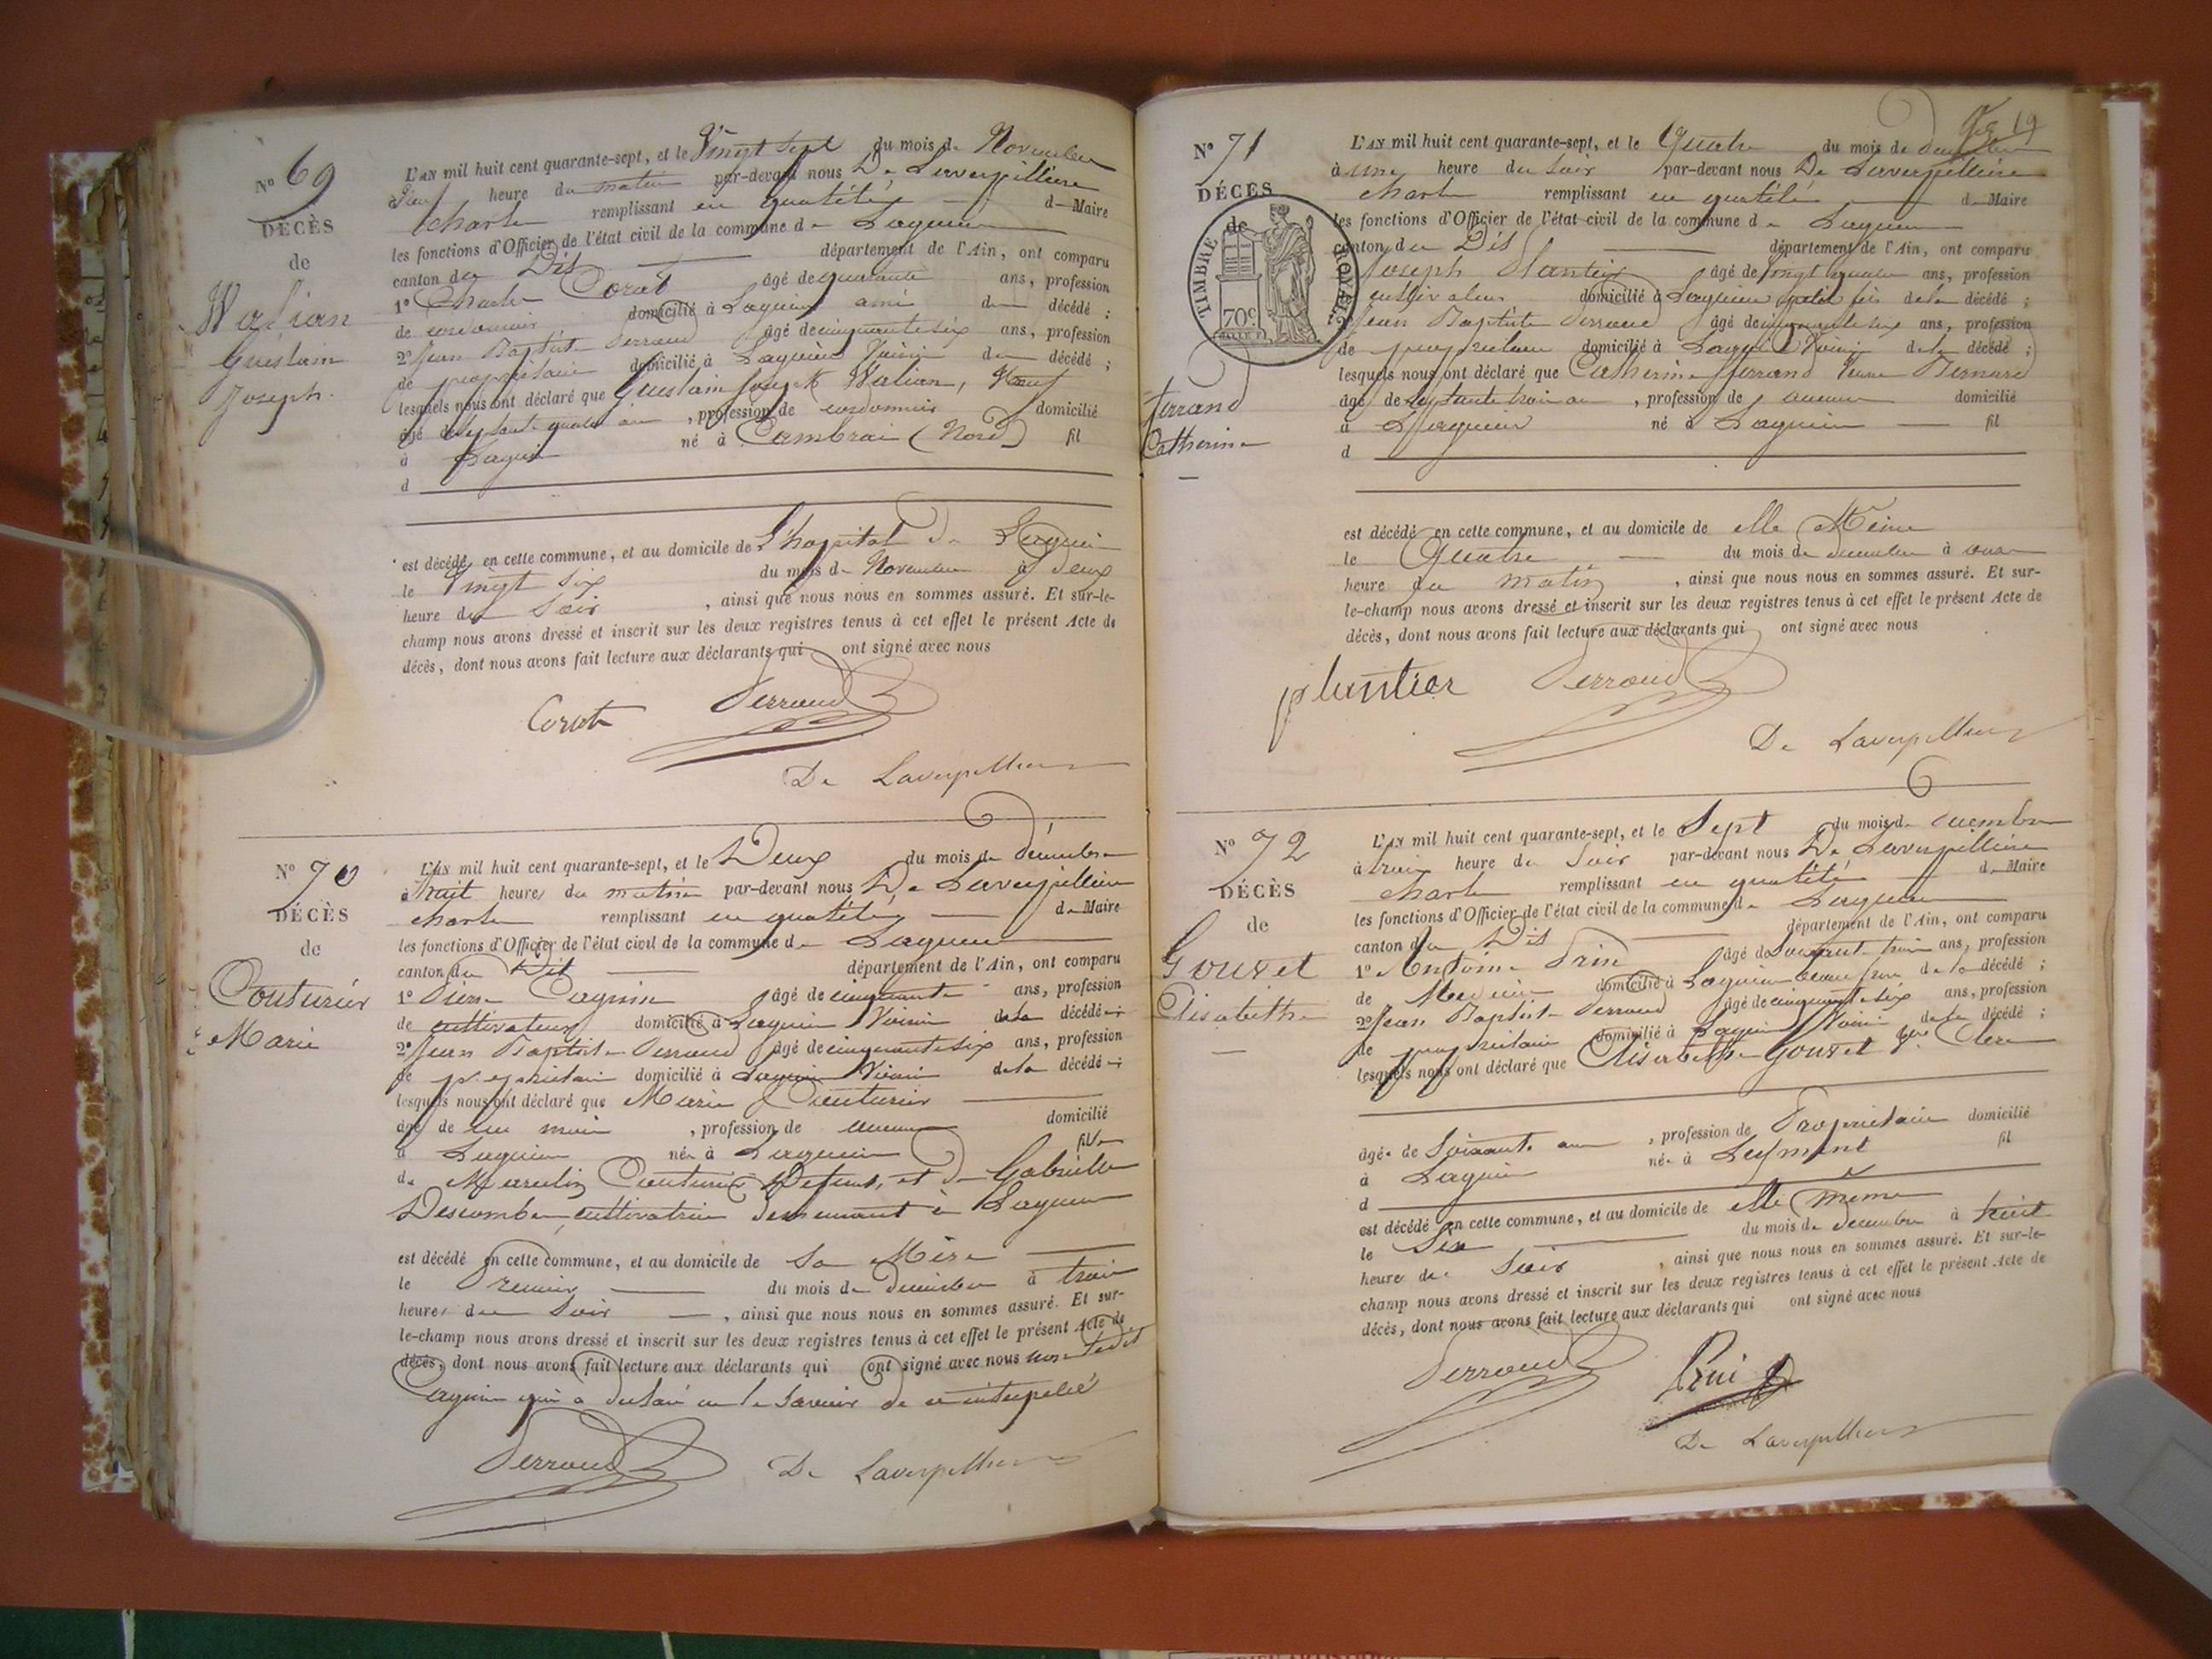 N° 69
DÉCÈS
de
Walian
Guislain
Joseph.
L'AN mil huit cent quarante-sept, et le Vingt Sept du mois de Novembre
à neuf heure du matin par-devant nous De Laverpillière
Charle remplissant en qualité de Maire
les fonctions d'Officier de l'état civil de la commune de Lagnieu
canton du Dit département de l'Ain, ont comparu
1° Charle Corat âgé de quarante ans, profession
de cordonnier domicilié à Lagnieu ami du décédé ;
2° Jean Baptiste Perraud âgé de cinquante six ans, profession
de propriétaire domicilié à Lagnieu Voisin du décédé ;
lesquels nous ont déclaré que Guislain Joseph Walian, Veuf
âgé de septante quatre ans , profession de cordonnier domicilié
à Lagnieu né à Cambrai (Nord) fil
d
est décédé en cette commune, et au domicile de L'hopital de Lagnieu
le Vingt Six du mois de Novembre à deux
heure du Soir , ainsi que nous nous en sommes assuré. Et sur-le-
champ nous avons dressé et inscrit sur les deux registres tenus à cet effet le présent Acte de
décès, dont nous avons fait lecture aux déclarants qui ont signé avec nous
Corat Perraud
De Laverpilliere
N° 70
DÉCÈS
de
Couturier
Marie
L'AN mil huit cent quarante-sept, et le Deux du mois de décembre
à huit heures du matin par-devant nous De Laverpillière
charle remplissant en qualité de Maire
les fonctions d'Officier de l'état civil de la commune de Lagnieu
canton du Dit département de l'Ain, ont comparu
1° Pierre Cagnin âgé de cinquante ans, profession
de cultivateur domicilié à Lagnieu Voisin de la décédée ;
2° Jean Baptiste Perraud âgé de cinquante six ans, profession
de propriétaire domicilié à Lagnieu Voisin de la décédée ;
lesquels nous ont déclaré que Marie Couturier
âgé de un mois , profession de aucune domicilié
à Lagnieu née à Lagnieu fille
de Marcelin Couturier Defunt, et de Gabrielle
Descombe cultivatrice demeurant à Lagnieu
est décédé en cette commune, et au domicile de Sa Mère
le Premier du mois de décembre à trois
heures du Soir , ainsi que nous nous en sommes assuré. Et sur-
le-champ nous avons dressé et inscrit sur les deux registres tenus à cet effet le présent Acte de
décès, dont nous avons fait lecture aux déclarants qui ont signé avec nous non ledit
Cagnin qui a déclaré ne le savoir de ce interpellé
Perraud De Laverpilliere
19
N° 71
DÉCÈS
de
TIMBRE ROYAL
70c
Ferrand
Catherine
L'AN mil huit cent quarante-sept, et le Quatre du mois de décembre
à une heure du Soir par-devant nous De Laverpillière
charle remplissant en qualité de Maire
les fonctions d'Officier de l'état-civil de la commune de Lagnieu
canton du Dit département de l'Ain, ont comparu
Joseph Plantier âgé de vingt quatre ans, profession
cultivateur domicilié à Lagnieu petit fils de la décédé ;
2° Jean Baptiste Perraud âgé de cinquante six ans, profession
de propriétaire domicilié à Lagnieu Voisin de la décédé ;
lesquels nous ont déclaré que Catherine Ferrand Veuve Bernard
âgé de septante trois an , profession de aucune domicilié
à Lagnieu né à Lagnieu fil
d
est décédé en cette commune, et au domicile de elle Même
le Quatre du mois de décembre à onze
heure du matin , ainsi que nous nous en sommes assuré. Et sur-
le-champ nous avons dressé et inscrit sur les deux registres tenus à cet effet le présent Acte de
décès, dont nous avons fait lecture aux déclarants qui ont signé avec nous
plantier Perraud
De Laverpilliere
N° 72
DÉCÈS
de
Gouvet
Elisabethe
L'AN mil huit cent quarante-sept, et le Sept du mois de decembre
à trois heure du Soir par-devant nous De Laverpillière
charle remplissant en qualité de Maire
les fonctions d'Officier de l'état civil de la commune de Lagnieu
canton du Dit département de l'Ain, ont comparu
1° Antoine Prin âgé de Soixante trois ans, profession
de Medecin domicilié à Lagnieu beau frere de la décédé ;
2° Jean Baptiste Perraud âgé de cinquante six ans, profession
de propriétaire domicilié à Lagnieu Voisin de la décédé ;
lesquels nous ont déclaré que Elisabethe Gouvet Vve Clere
âgée de Soixante ans , profession de Propriétaire domicilié
à Lagnieu née à Leyment fil
d
est décédé en cette commune, et au domicile de elle même
le Six du mois de decembre à huit
heures du Soir , ainsi que nous nous en sommes assuré. Et sur-le-
champ nous avons dressé et inscrit sur les deux registres tenus à cet effet le présent Acte de
décès, dont nous avons fait lecture aux déclarants qui ont signé avec nous
Perraud
De Laverpilliere